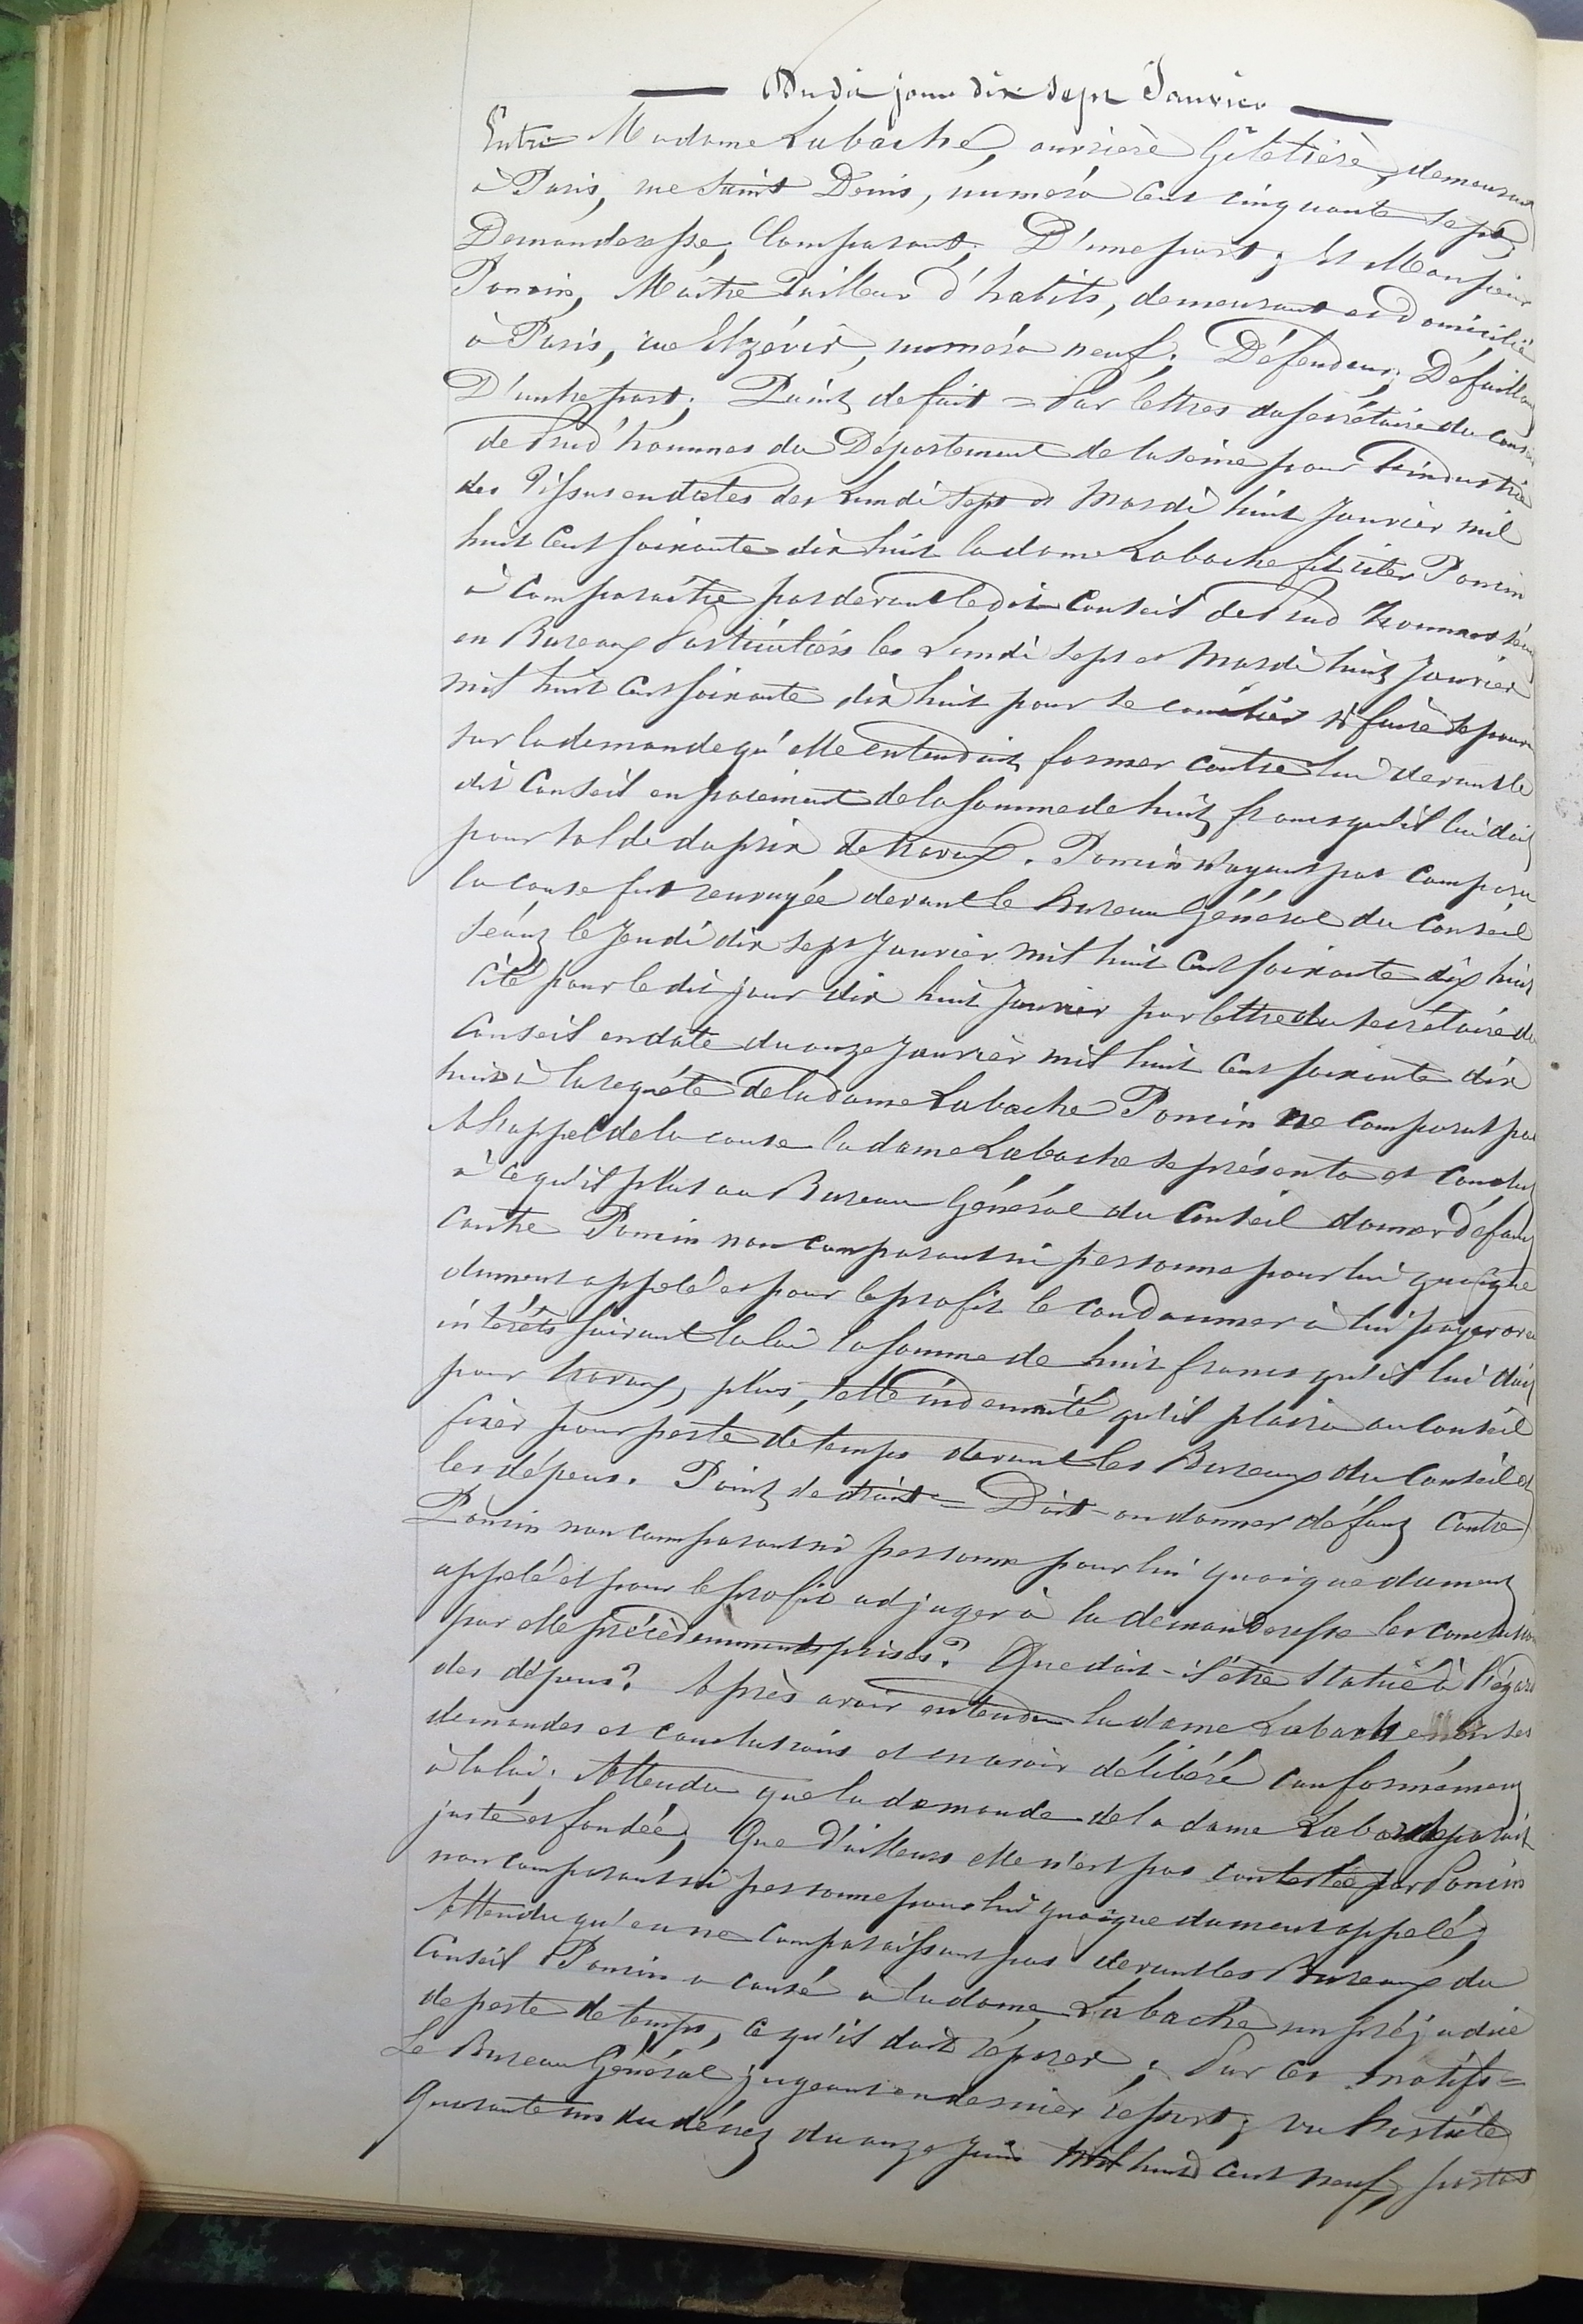 Du dit jour dix sept Janvier
Entre Madame Labache, ouvrière Giletière, demeurant
à Paris, rue Saint Denis, numéro cent cinquante sept,
Demanderesse, Comparant; D'une part; Et Monsieur
Poncin, Maître Tailleur d'habits, demeurant et domicilié
à Paris, rue Elzévir, numéro neuf; Défendeur; Défaillant
D'autre part; Point de fait = Par lettres du secrétaire du conseil
de Prud'hommes du Département de la Seine pour l'industrie
des Tissus en dates des Lundi sept et Mardi huit Janvier mil
huit cent soixante dix huit la dame Labache fit citer Poncin
à comparaître par devant le dit Conseil de Prud'hommes séant
en Bureaux Particuliers les Lundi sept et Mardi huit Janvier
mil huit cent soixante dix huit pour se concilier si faire se pouvait
sur la demande qu'elle entendait former contre lui devant le
dit Conseil en paiement de la somme de huit francs qu'il lui doit
pour solde du prix de travaux. Poncin n'ayant pas comparu
la cause fut renvoyée devant le Bureau Général du Conseil
séant le Jeudi dix sept Janvier mil huit cent soixante dix huit
Cité pour le dit jour dix huit Janvier par lettre du secrétaire du
Conseil en date du onze Janvier mil huit cent soixante dix
huit à la requête de la dame Labache Poncin ne comparut pas
A l'appel de la cause la dame Labache se présenta et conclut
à ce qu'il plut au Bureau Général du Conseil donner défaut
contre Poncin non comparant ni personne pour lui quoique
dument appelé et pour le profit le condamner à lui payer avec
intérêts suivant la loi la somme de huit francs qu'il lui doit
pour travaux, plus, telle indemnité qu'il plaira au Conseil
fixer pour perte de temps devant les Bureaux du Conseil et
les dépens. Point de droit = Doit-on donner défaut contre
Poncin non comparant ni personne pour lui quoique dument
appelé et pour le profit adjuger à la demanderesse les conclusions
par elle précédemment prises? Que doit-il être statué à l'égard
des dépens? Après avoir entendu la dame Labache en ses
demandes et conclusions et en avoir délibéré conformément
à la loi; Attendu que la demande de la dame Labache parait
juste et fondée; Que d'ailleurs elle n'est pas contestée par Poncin
non comparant ni personne pour lui quoique dument appelé;
Attendu qu'en ne comparaissant pas devant les Bureaux du
Conseil Poncin a causé à la dame Labache un préjudice
de perte de temps, ce qu'il doit réparer; Par ces motifs =
Le Bureau Général jugeant en dernier ressort; Vu l'article
quarante un du décret du onze Juin mil huit cent neuf, portant